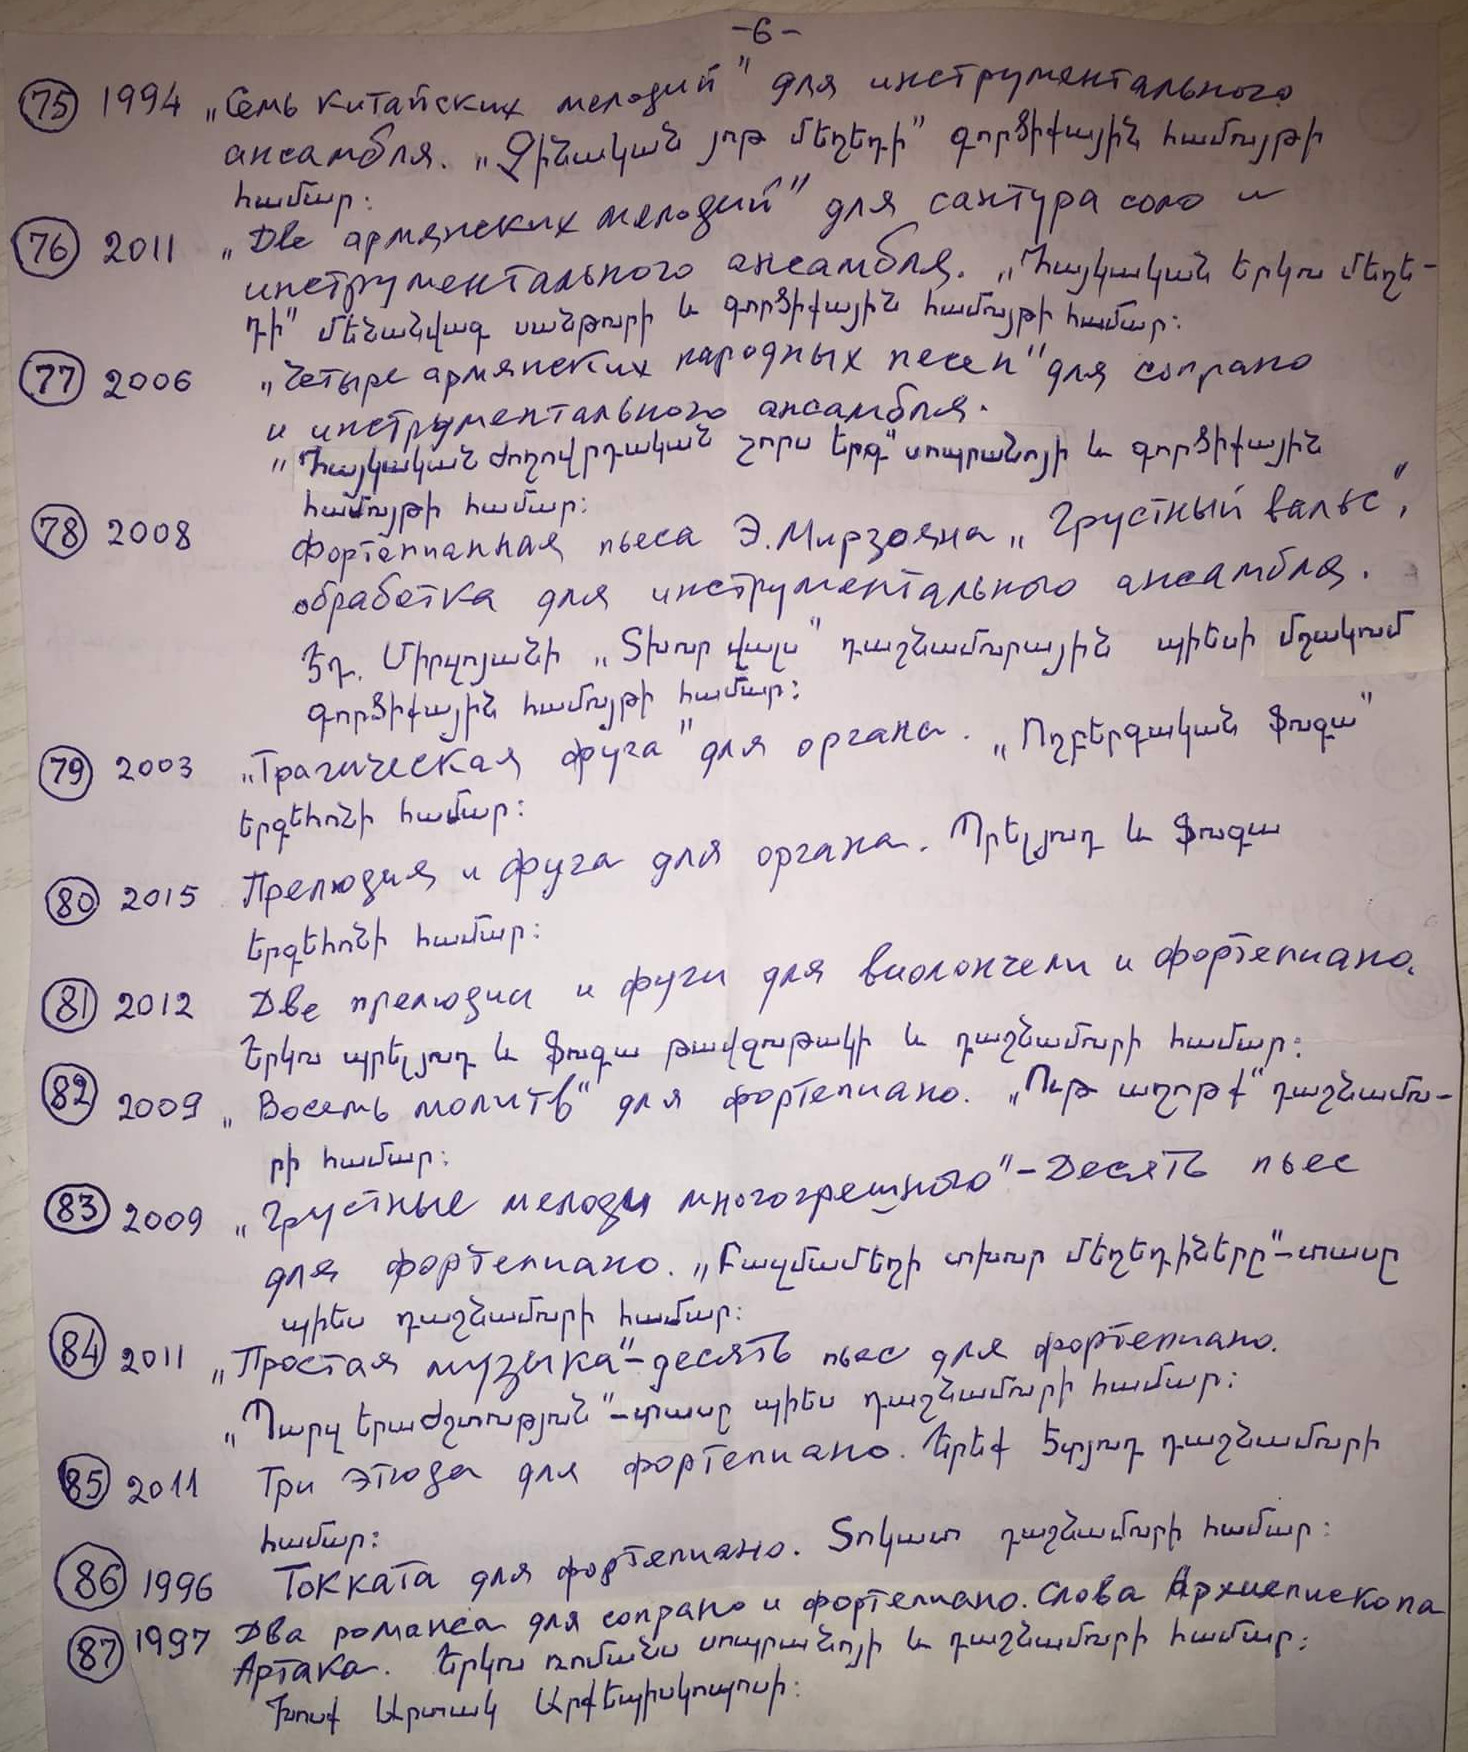 -6-
75 1994 „Семь китайских мелодий" для инструментального
ансамбля. „Չինական յոթ մեղեդի" գործիքային համույթի
համար:
76 2011 „Две армянских мелодий" для сантура соло и
инструментального ансамбля. „Հայկական երկու մեղե-
դի" մենանվագ սանթուրի և գործիքային համույթի համար:
77 2006 „Четыре армянских народных песен" для сопрано
и инструментального ансамбля.
„Հայկական ժողովրդական չորս երգ" սոպրանոյի և գործիքային
համույթի համար:
78 2008 Фортепианная пьеса Э. Мирзояна „Грустный вальс",
обработка для инструментального ансамбля.
Էդ. Միրզոյանի „Տխուր վալս" դաշնամուրային պիեսի մշակում
գործիքային համույթի համար:
79 2003 „Трагическая фуга" для органа. „Ողբերգական ֆուգա"
երգեհոնի համար:
80 2015 Прелюдия и фуга для органа. Պրելյուդ և ֆուգա
երգեհոնի համար:
81 2012 Две прелюдии и фуги для виолончели и фортепиано.
Երկու պրելյուդ և ֆուգա թավջութակի և դաշնամուրի համար:
82 2009 „Восемь молитв" для фортепиано. „Ութ աղոթք" դաշնամու-
րի համար:
83 2009 „Грустные мелоди многогрешного" - Десять пьес
для фортепиано. „Բազմամեղի տխուր մեղեդիները" - տասը
պիես դաշնամուրի համար:
84 2011 „Простая музыка" - десять пьес для фортепиано.
„Պարզ երաժշտություն" - տասը պիես դաշնամուրի համար:
85 2011 Три этюда для фортепиано. Երեք էտյուդ դաշնամուրի
համար:
86 1996 Токката для фортепиано. Տոկատ դաշնամուրի համար:
87 1997 Два романса для сопрано и фортепиано. Слова Архиепископа
Артака. Երկու ռոմանս սոպրանոյի և դաշնամուրի համար:
Խոսք Արտակ Արքեպիսկոպոսի: